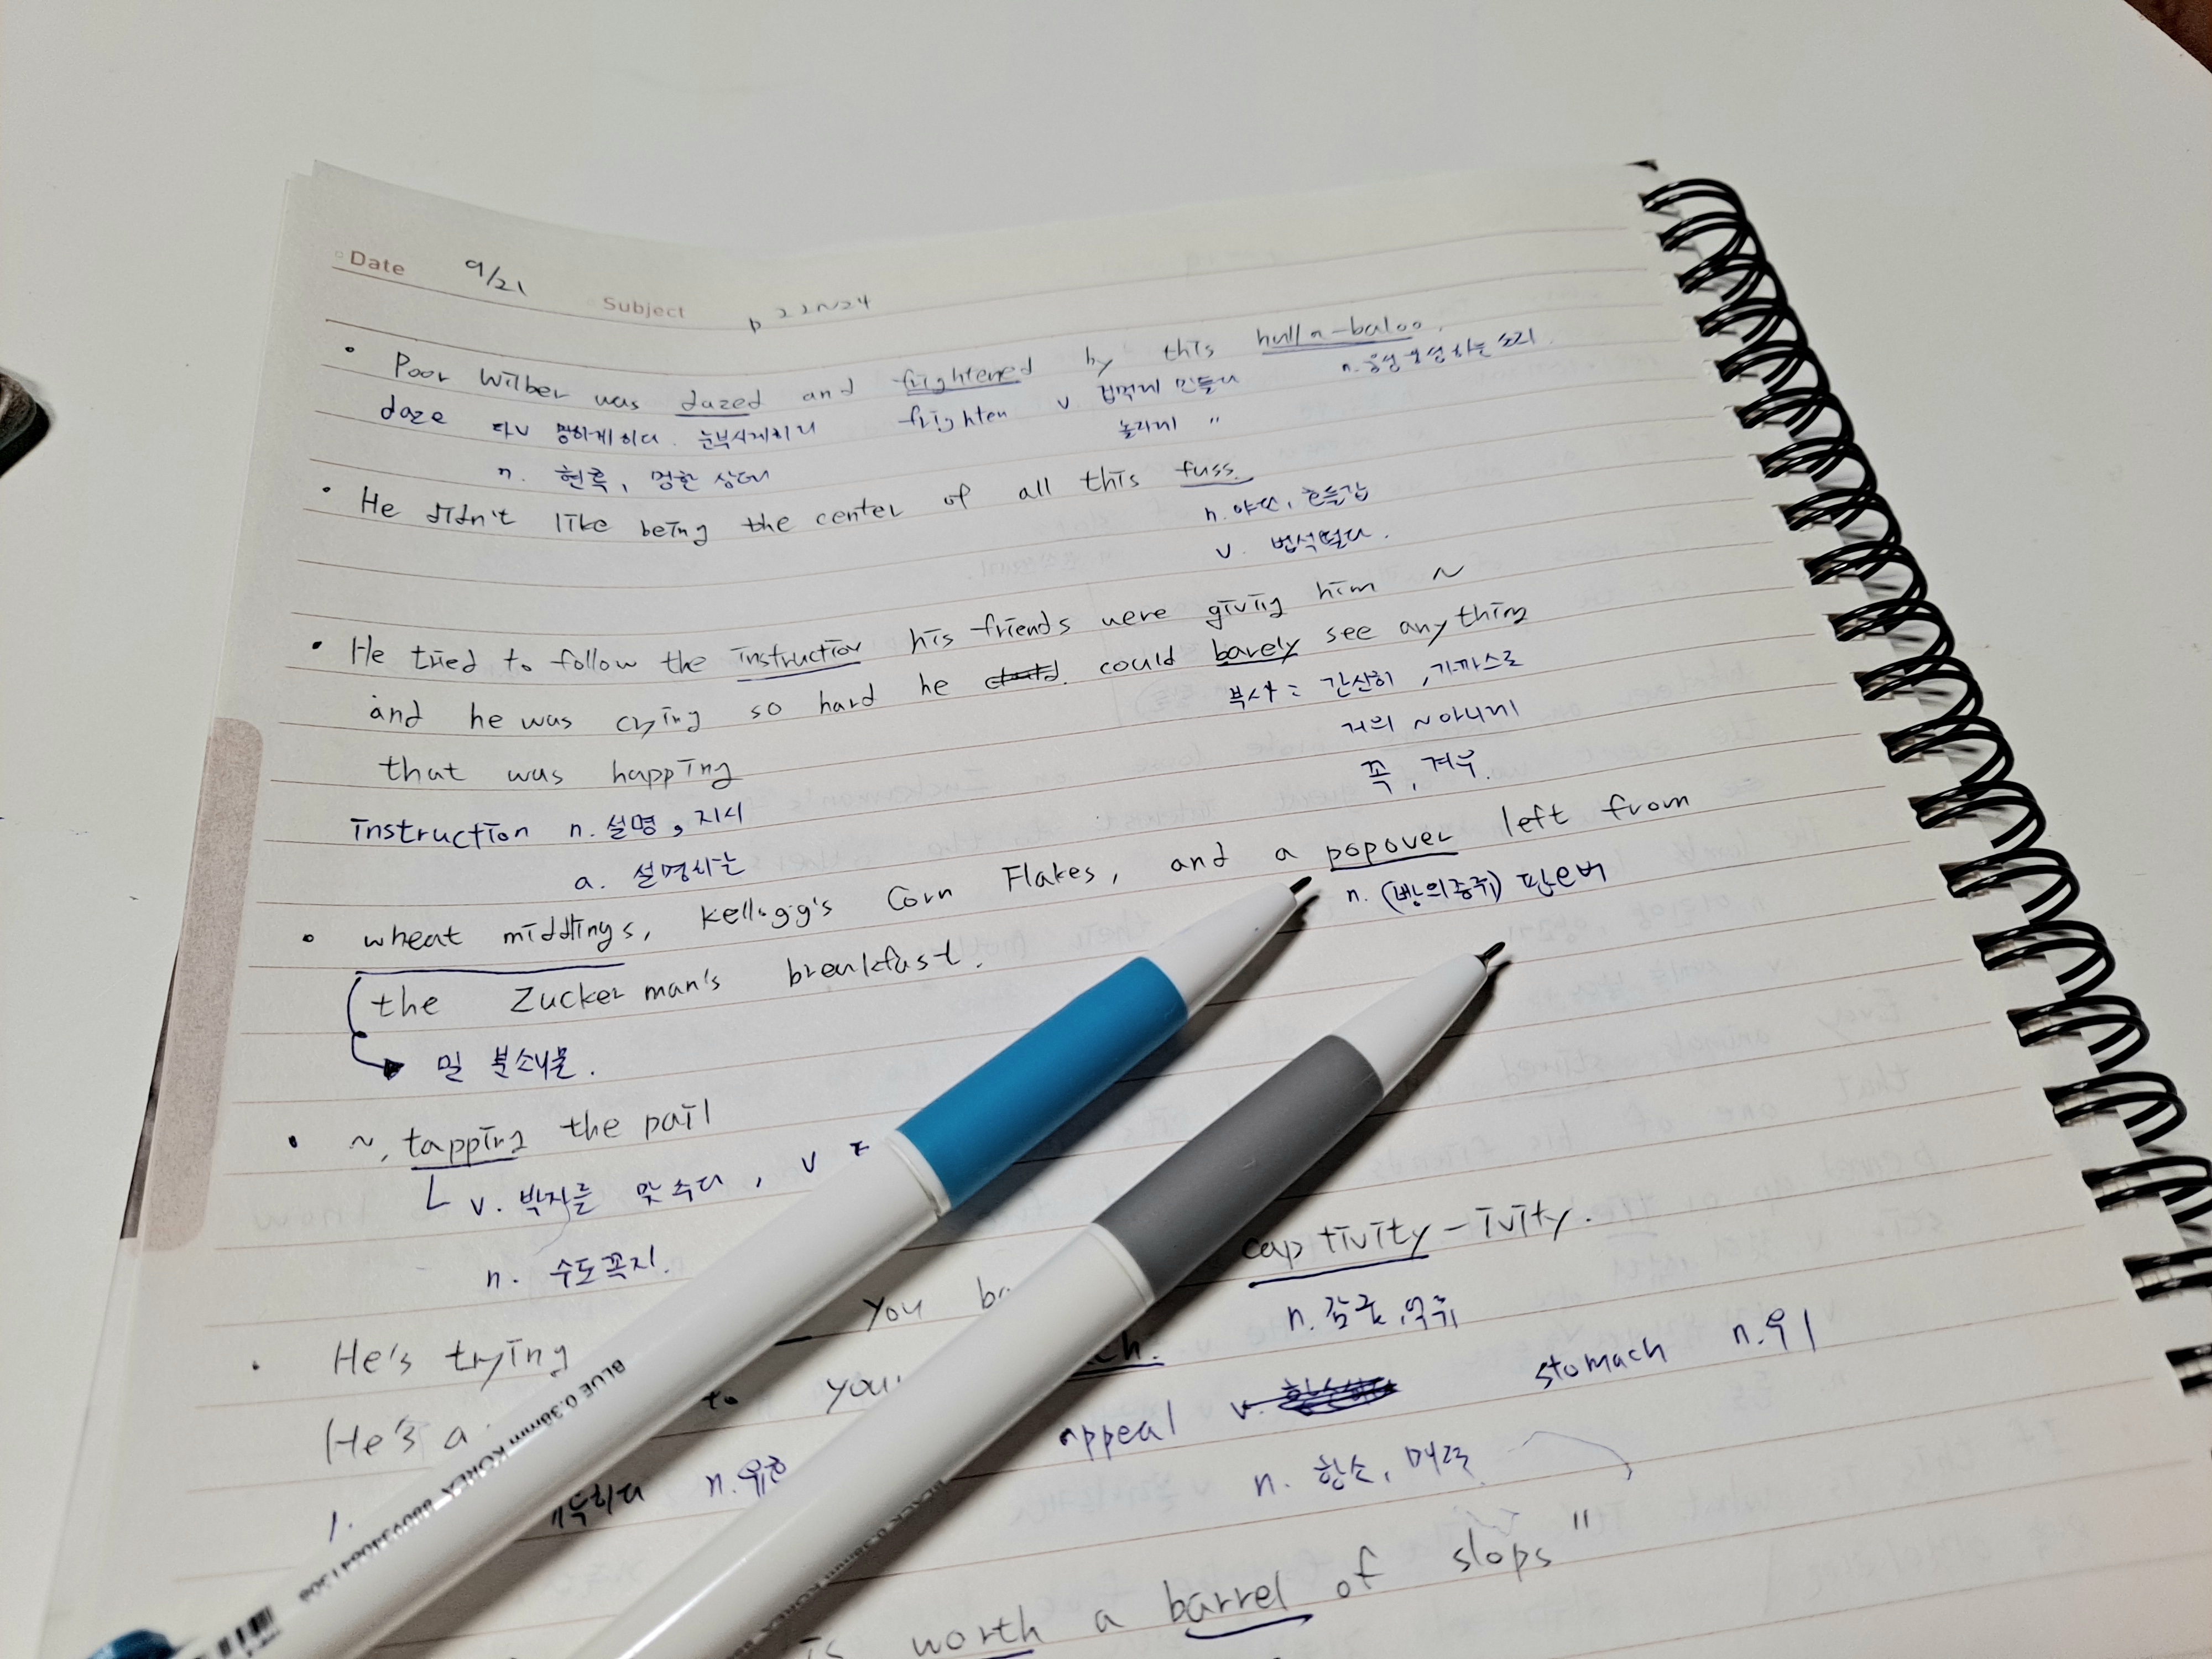 Date 9/21 Subject p 22~24
• Poor Wilber was dazed and frightened by this hulla-baloo.
daze 타v 멍하게하다. 눈부시게하다 frighten v 겁먹게 만들다 n. 웅성웅성하는 소리.
놀라게 "
n. 현혹, 멍한 상태
• He didn't like being the center of all this fuss.
n. 야단, 호들갑
v. 법석떨다.
• He tried to follow the instruction his friends were giviig him ~
and he was crying so hard he could barely see anything
부사: 간신히, 가까스로
that was happing
거의 ~아니게
꼭, 겨우.
instruction n. 설명, 지시
a. 설명하는
• wheat middlings, kellogg's Corn Flakes, and a popover left from
n. (빵의종류) 팝오버
the Zuckerman's breakfast.
밀 분쇄물.
• ~, tapping the pail
v. 박자를 맞추다, v
n. 수도꼭지.
• He's trying you captivity-ivity.
n. 감금, 억류
He's a to your ch.
appeal v. stomach n. 위
1. n. 유혹 n. 항소, 매력
is worth a barrel of slops"
BLUE 0.38mm KOREA
BLACK 0.38mm KOREA